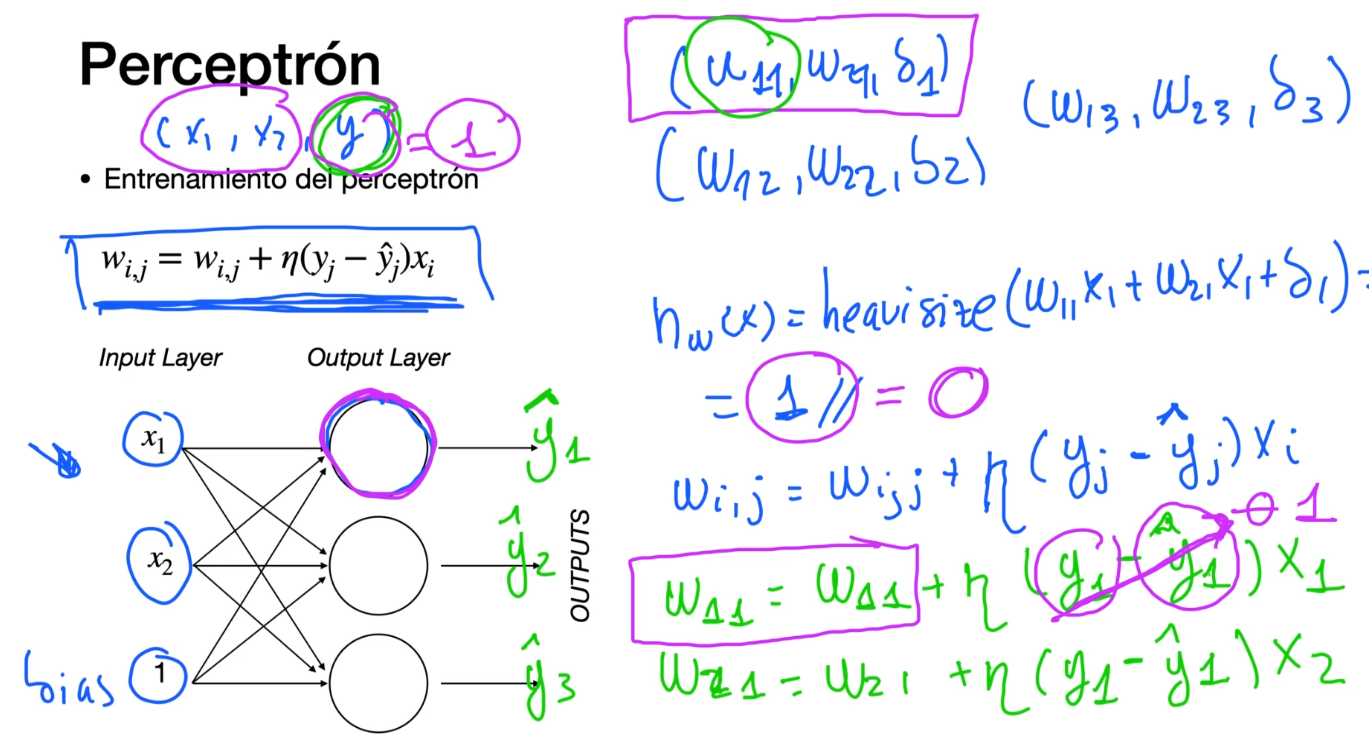 Perceptrón
(x₁, x₂, y) = 1
• Entrenamiento del perceptrón
w_{i,j} = w_{i,j} + η(y_j − ŷ_j)x_i
Input Layer
Output Layer
x₁
x₂
bias 1
ŷ₁
ŷ₂
ŷ₃
OUTPUTS
(w₁₁, w₂₁, δ₁)
(w₁₃, w₂₃, δ₃)
(w₁₂, w₂₂, δ₂)
h_w(x) = heavisize(w₁₁x₁ + w₂₁x₁ + δ₁) =
= 1 // = 0
w_{i,j} = w_{i,j} + η(y_j − ŷ_j)x_i
w₁₁ = w₁₁ + η(y₁ − ŷ₁)x₁
w₂₁ = w₂₁ + η(y₁ − ŷ₁)x₂